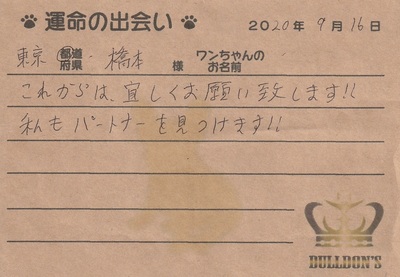 運命の出会い 2020年 9月16日
東京 都道府県・橋本 様 ワンちゃんのお名前
これからは、宜しくお願い致します!!
私もパートナーを見つけます!!
BULLDON'S